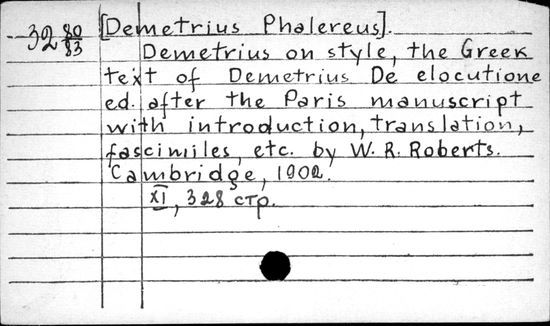 32 80/83 [Demetrius Phalereus].
Demetrius on style, the Greek
text of Demetrius De elocutione
ed. after the Paris manuscript
with introduction, translation,
fascimiles, etc. by W. R. Roberts.
Cambridge, 1902.
XI, 328 стр.